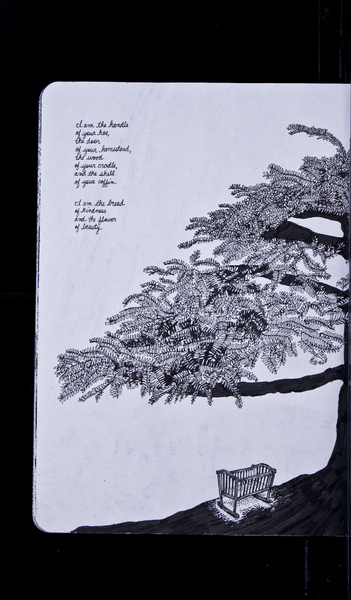 I am the handle
of your hoe,
the door
of your homestead,
the wood
of your cradle,
and the shell
of your coffin.
I am the bread
of kindness
and the flower
of beauty.